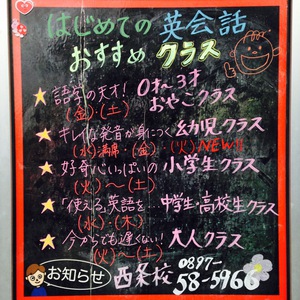 はじめての英会話
おすすめクラス
語学の天才! 0才~3才
(金)(土) おやこクラス
キレイな発音が身につく 幼児クラス
(水)満席・(金)・(火)NEW!!
好奇心いっぱいの 小学生クラス
(火)~(土)
「使える」英語を 中学生・高校生クラス
(水)・(木)
今からでも遅くない! 大人クラス
(火)~(土)
お知らせ 西条校 0897-
58-5966